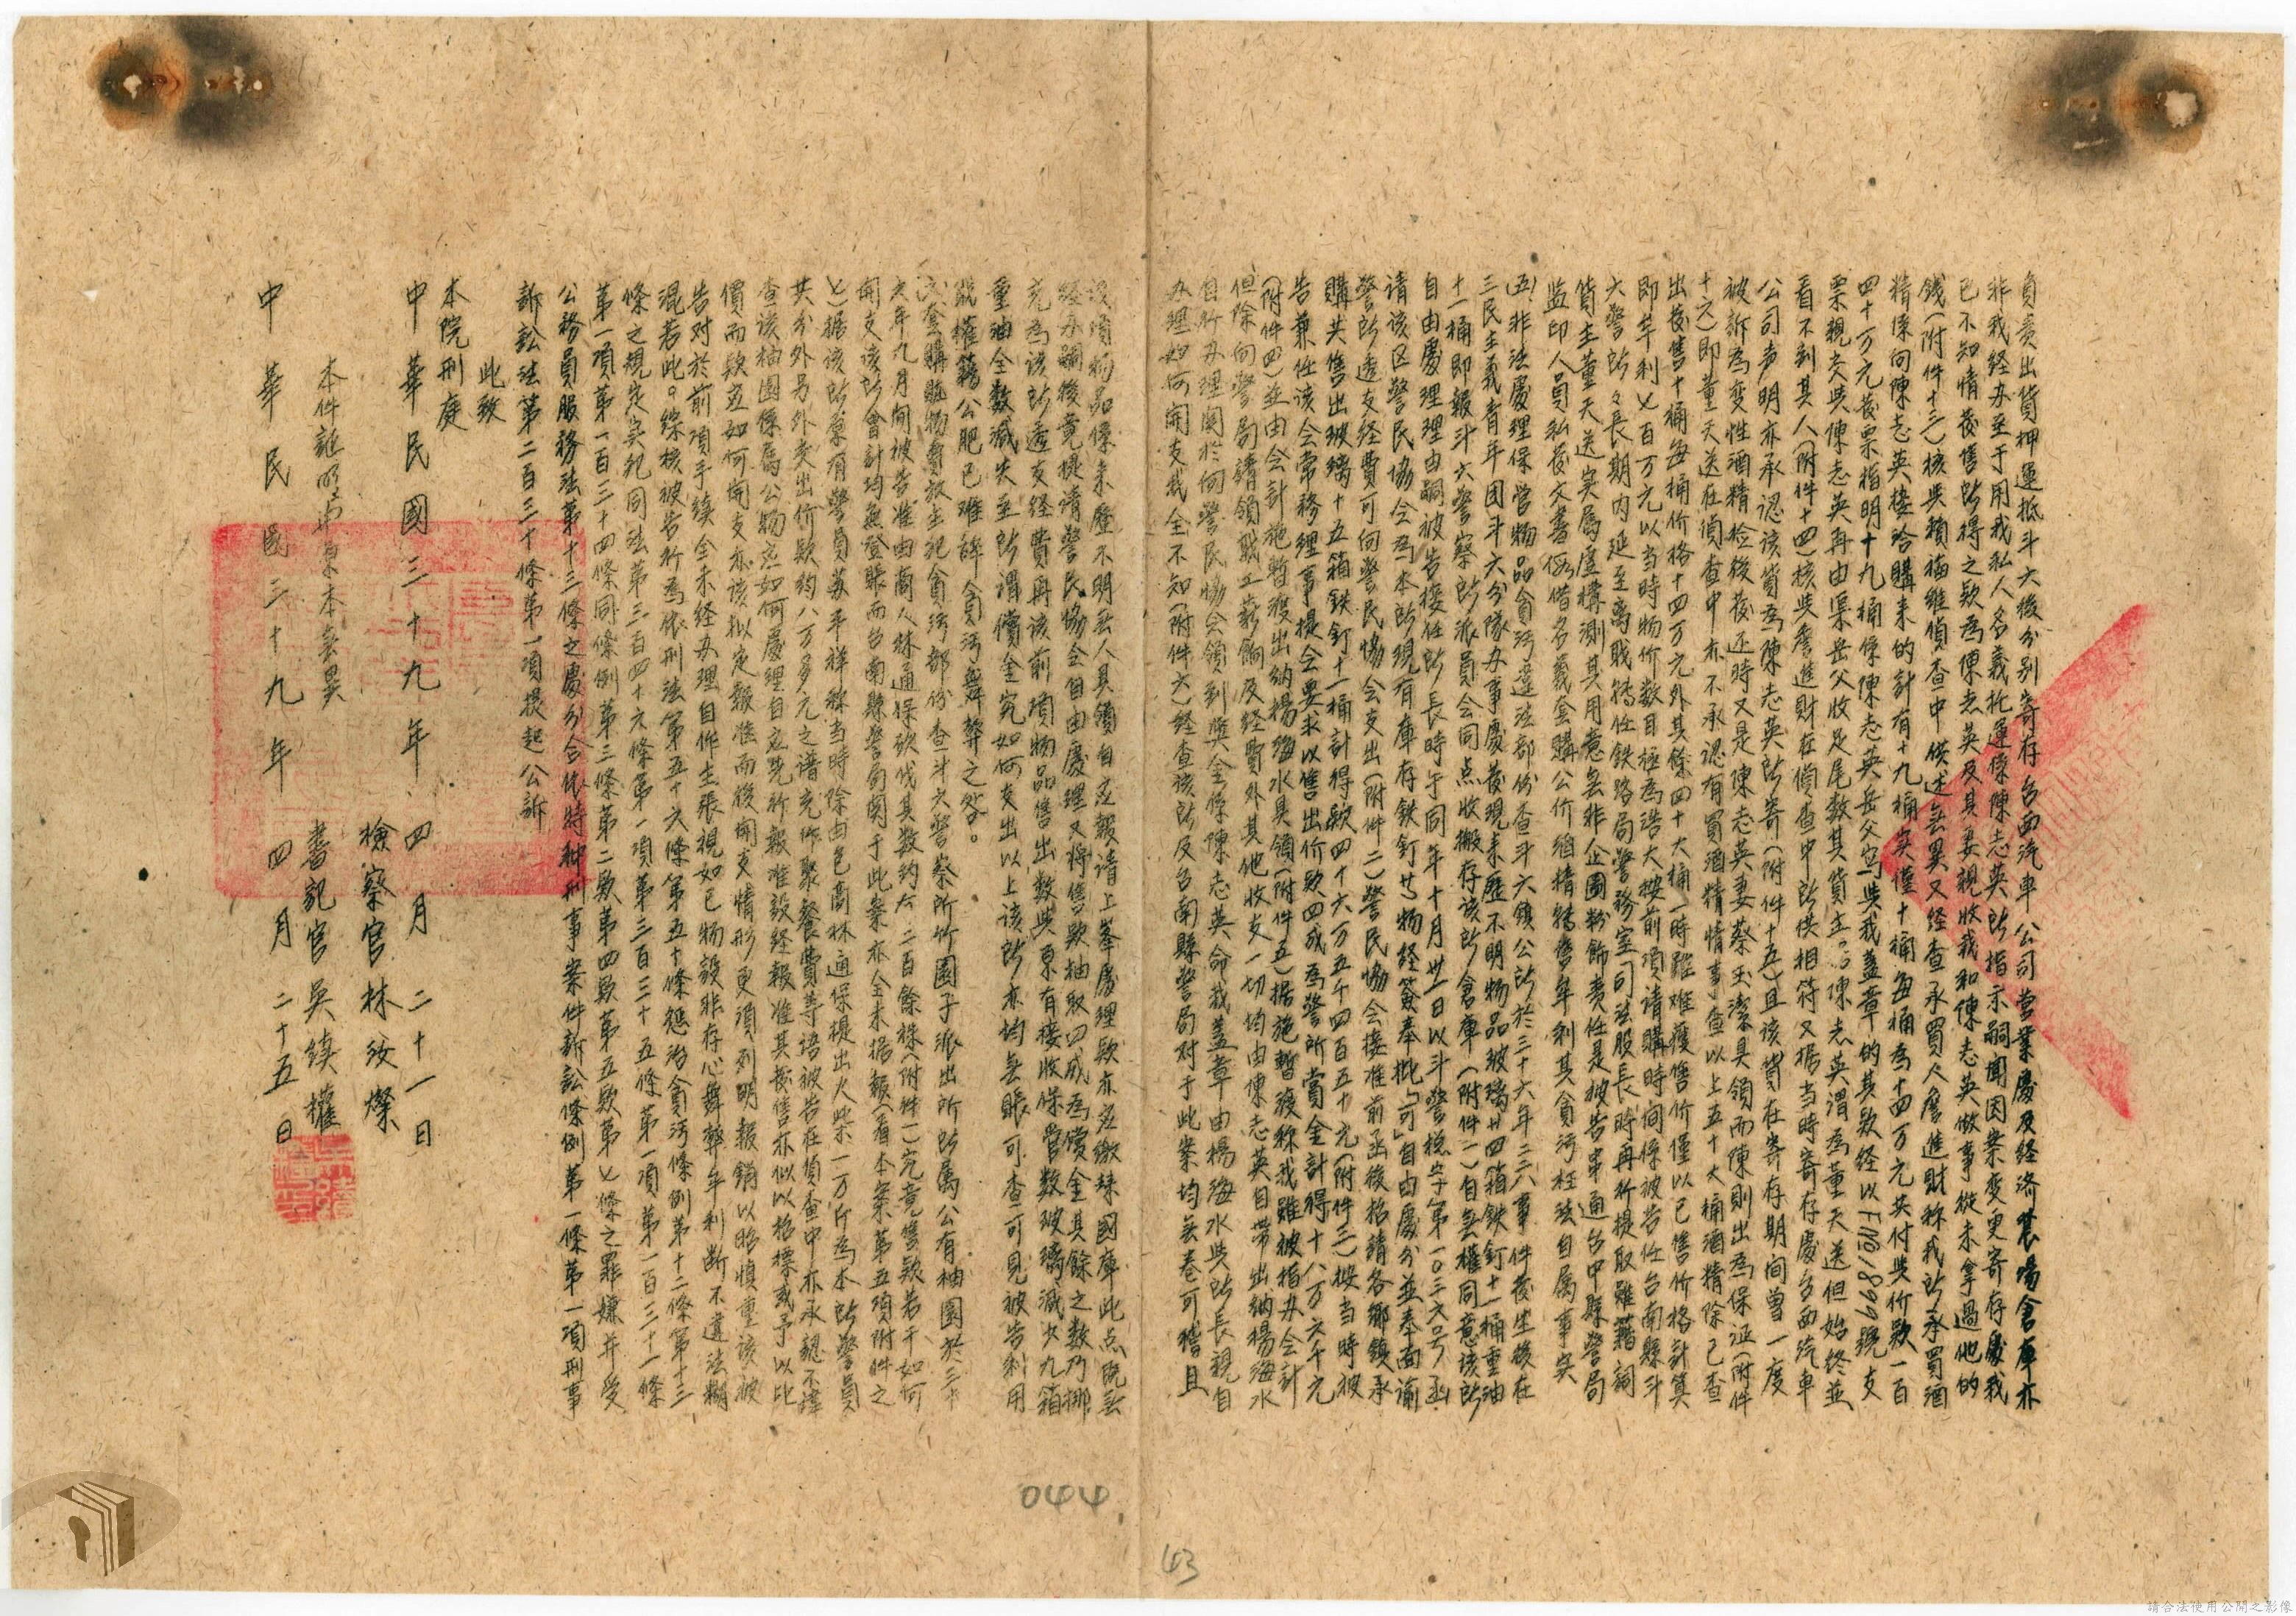 負責出貨押運抵斗六後分別寄存台西汽車公司営業處及経済農場倉庫亦
非我経办至于用我私人名義托運係陳志英所指示嗣聞因案変更寄存處我
已不知情後售所得之款為陳志英及其妻親收我和陳志英做事從未拿過他的
錢(附件十三)核與賴福維偵查中供述無異又経查承買人詹進財称我所承買酒
精係向陳志英接洽購来的計有十九桶実僅十桶每桶為十四万元共付與价款一百
四十万元發票指明十九桶係陳志英岳父寫與我蓋章的其款経以 支
票親交與陳志英再由渠岳父收足尾数其貨主 陳志英謂為董天送但始終並
看不到其人(附件十四)核與詹進財在偵查中所供相符又据当時寄存處台西汽車
公司声明亦承認該貨為陳志英所寄(附件十五)且該貨在寄存期间曾一度
被訴為変性酒精檢後發还時又是陳志英妻蔡玉潔具領而陳則出為保证(附件
十六)即董天送在偵查中亦不承認有買酒精情事查以上五十大桶酒精除已查
出後售十桶每桶价格十四万元外其餘四十大桶一時雖难獲售价僅以已售价格計算
即牟利七百万元以当時物价数目極為浩大按前項请購時间係被告任台南縣斗
六警所々長期内延至离職転任鉄路局警務室司法股長時再行提取雖藉詞
貨主董天送実属虛構測其用意無非企圖粉飾責任是被告串通台中縣警局
监印人員私發文書假借名義套購公价酒精転售牟利其貪污枉法自属事実
五、非法處理保管物品貪污違法部份查斗六鎮公所於三十六年二二八事件發生後在
三民主義青年团斗六分隊办事處發現来歷不明物品玻璃廿四箱鉄釘十一桶重油
十一桶即報斗六警察所派員会同点收搬存該所倉庫(附件一)自無權同意該所
自由處理理由嗣被告接任所長時于同年十月卅一日以斗警總字第一〇三六号函
请該区警民協会為本所現有庫存鉄釘 物経簽奉批「可」自由處分並奉面諭
警所透支経費可向警民協会支出(附件二)警民協会接准前函後招請各鄉鎮承
購共售出玻璃十五箱鉄釘十一桶計得款四十六万五千四百五十元(附件三)按当時被
告兼任該会常務理事提会要求以售出价款四成為警所賞金計得十八万六千元
(附件四)並由会計施暫渡出納楊海水具領(附件五)据施暫渡称我雖被指办会計
但除向警局請領職工薪餉及経費外其他收支一切均由陳志英自帶出納楊海水
自行办理関於向警民協会領到奨金係陳志英命我蓋章由楊海水與所長親自
办理如何開支我全不知(附件六)経查該所及台南縣警局对于此案均無卷可稽且
該項物品係来歷不明無人具領自应報请上峯處理款亦应繳赫國庫此点既無
経办嗣後竟提请警民協会自由處理又将售款抽取四成為償金其餘之数乃挪
充為該所透支経費再該前項物品售出数與原有接收保管数玻璃減少九箱
重油全数減失至所谓償金究如何支出以上該所亦均無賬可查可見被告利用
職權藉公肥己难辞貪污舞弊之咎。
六、套購 物變 犯貪污部份查斗六警察所竹園子派出所所属公有柚園於三十
六年九月间被告准由商人林通保砍伐其数約六 二百餘株(附件一)究竟售款若干如何
開支該所会計均無登賬而台南縣警局関于此案亦全未据報(看本案第五項附件之
七)据該所原有警員蘇平祥称当時除由包商林通保提出火柴一万斤為本所警員
共分外另外交出价款約八万多元之谱充作聚餐費等语被告在偵查中亦承認不諱
查該柚園係為公物应如何處理自应先行報准設経報准其發售亦似以招標或予以比
價而款应如何開支亦該拟定報准而後開支情形更須列明報銷以昭慎重該被
告对於前項手续全未経办理自作主張視如己物設非存心舞弊牟利断不違法糊
混若此。綜核被告行為依刑法第五十六條第五十條惩治貪污條例第十二條第十三
條之規定実犯同法第三百四十六條第一項第三百三十五條第一項第一百三十一條
第一項第一百三十四條同條例第三條第二款第四款第五款第七條之罪嫌并受
公務員服務法第十三條之處分合依特种刑事案件訴訟條例第一條第一項刑事
訴訟法第二百三十條第一項提起公訴
此致
本院刑庭
中華民國三十九年四月二十一日
檢察官林汝燦
本件証明與原本無異
書記官吳續權
中華民國三十九年四月二十五日
044
43
請合法使用公開之影像